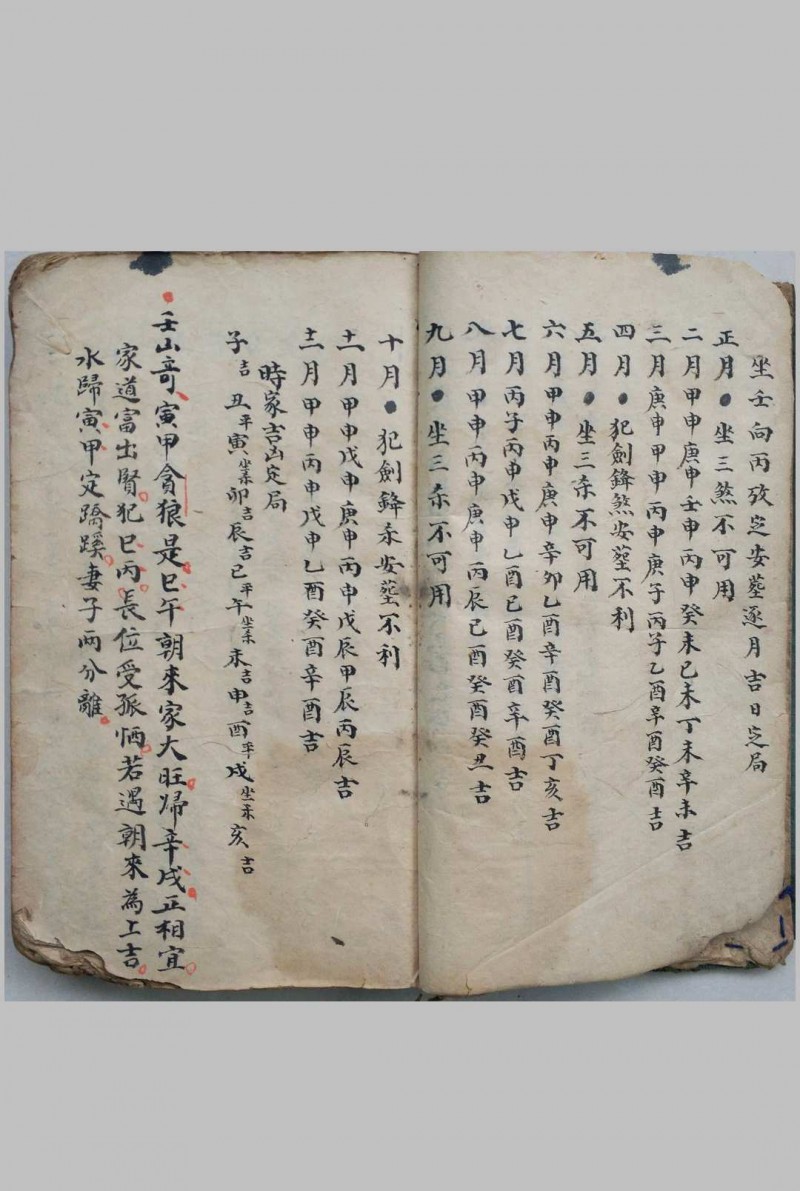 坐壬向丙攷定安葬逐月吉日定局
正月●坐三煞不可用
二月甲申庚申壬申丙申癸未己未丁未辛未吉
三月庚申甲申丙申庚子丙子乙酉辛酉癸酉吉
四月●犯劍鋒煞安葬不利
五月●坐三杀不可用
六月甲申丙申庚申辛卯乙酉辛酉癸酉丁亥吉
七月丙子丙申戊申乙酉己酉癸酉辛酉吉
八月甲申丙申庚申丙辰己酉癸酉癸丑吉
九月●坐三杀不可用
十月●犯劍鋒杀安葬不利
十一月甲申戊申庚申丙申戊辰甲辰丙辰吉
十二月甲申丙申戊申乙酉癸酉辛酉吉
時家吉凶定局
子吉丑平寅坐杀卯吉辰吉巳平午坐杀未吉申吉酉平戌坐杀亥吉
壬山哥寅甲貪狼是巳午朝來家大旺歸辛戌正相宜
家道富出賢犯巳丙長位受孤恓若遇朝來為上吉
水歸寅甲定蹻蹊妻子兩分離